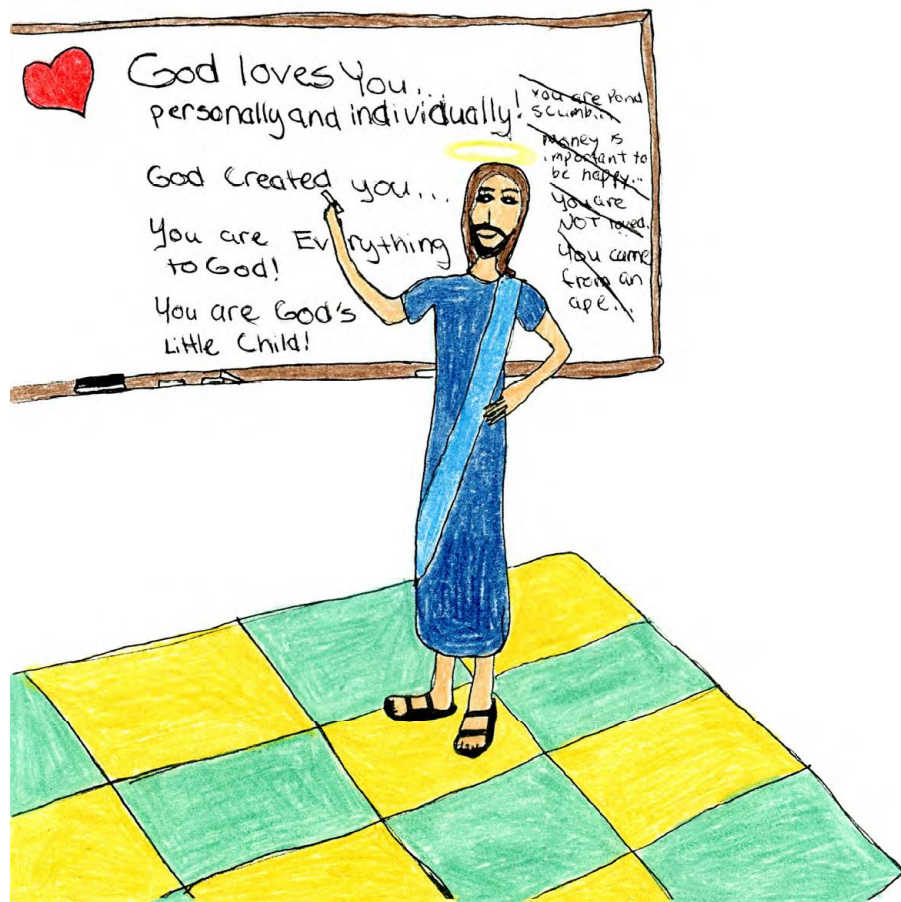 God loves You...
personally and individually!
God Created you...
You are Everything
to God!
You are God's
Little Child!
You are Pond
scumb...
money is
important to
be happy...
You are
NOT loved.
You came
from an
ape...